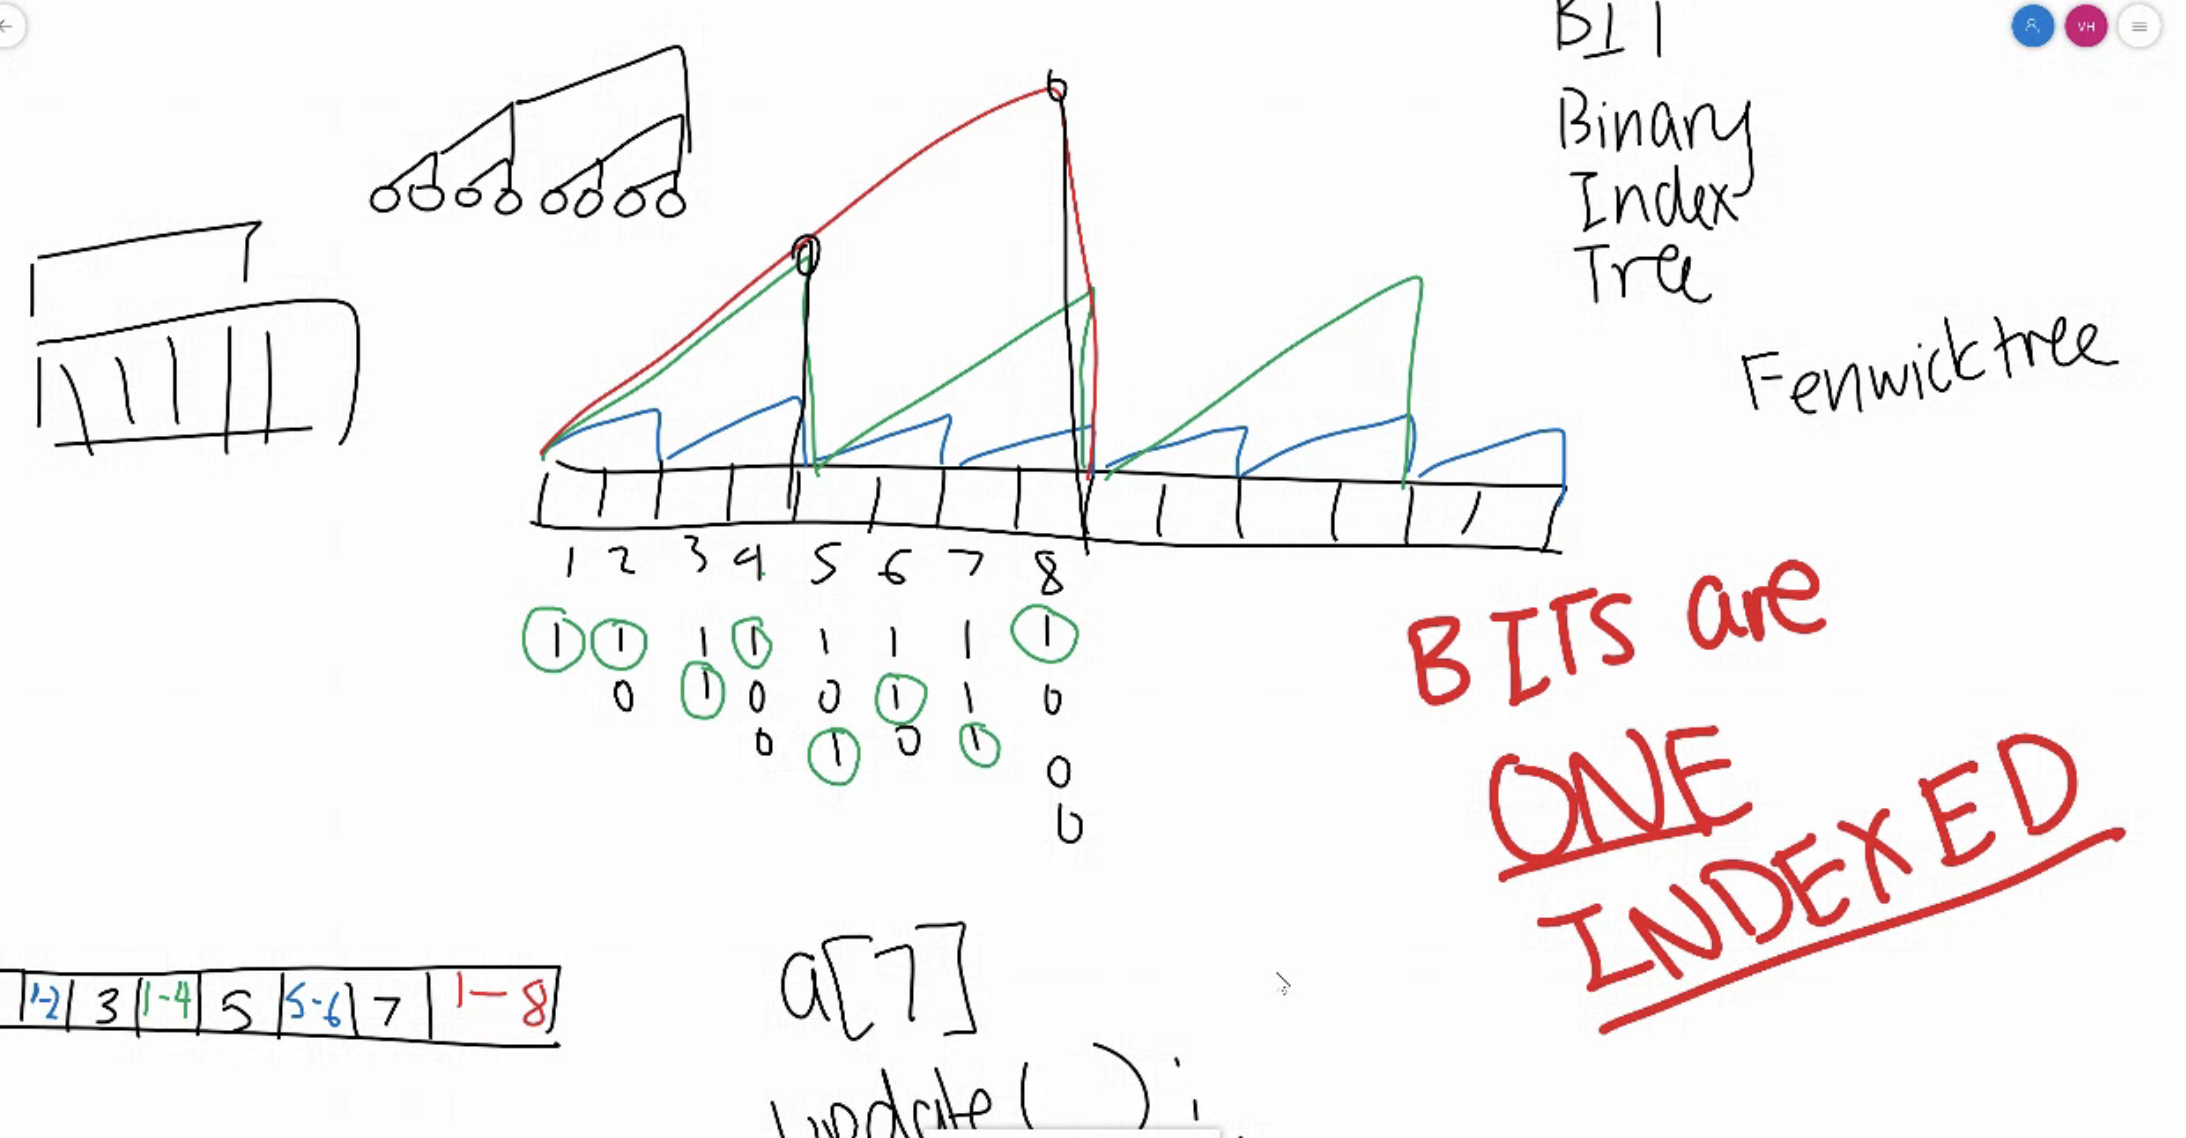 BIT
VH
Binary
Index
Tree
Fenwick tree
1 2 3 4 5 6 7 8
1 1 1 1 1 1 1 1
0 1 0 0 1 1 0
0 1 0 1 0
0
BITS are
ONE
INDEXED
1-2 3 1-4 5 5-6 7 1-8
a[7]
update( );